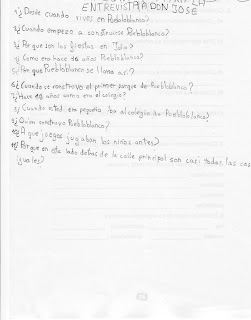 LA
ENTREVISTA A DON JOSÉ
1º¿Desde cuando vives en Pueblablanco?
2º¿Cuando empezo a construirse Pueblablanco?
3º¿Porque son las fiestas en Julio?
4º¿Como era hace 16 años Pueblablanco?
5º¿Por que Pueblablanco se llama así?
6º¿Cuando se construyo el primer parque de Pueblablanco?
7º¿Hace 10 años como era el colegio?
8º¿Cuando usted era pequeño iba al colegio de Pueblablanco?
9º¿Quien construyo Pueblablanco?
10º¿A que juegos jugaban los niños antes?
11º¿Porque en este lado detras de la calle principal son casi todas las cas
iguales?